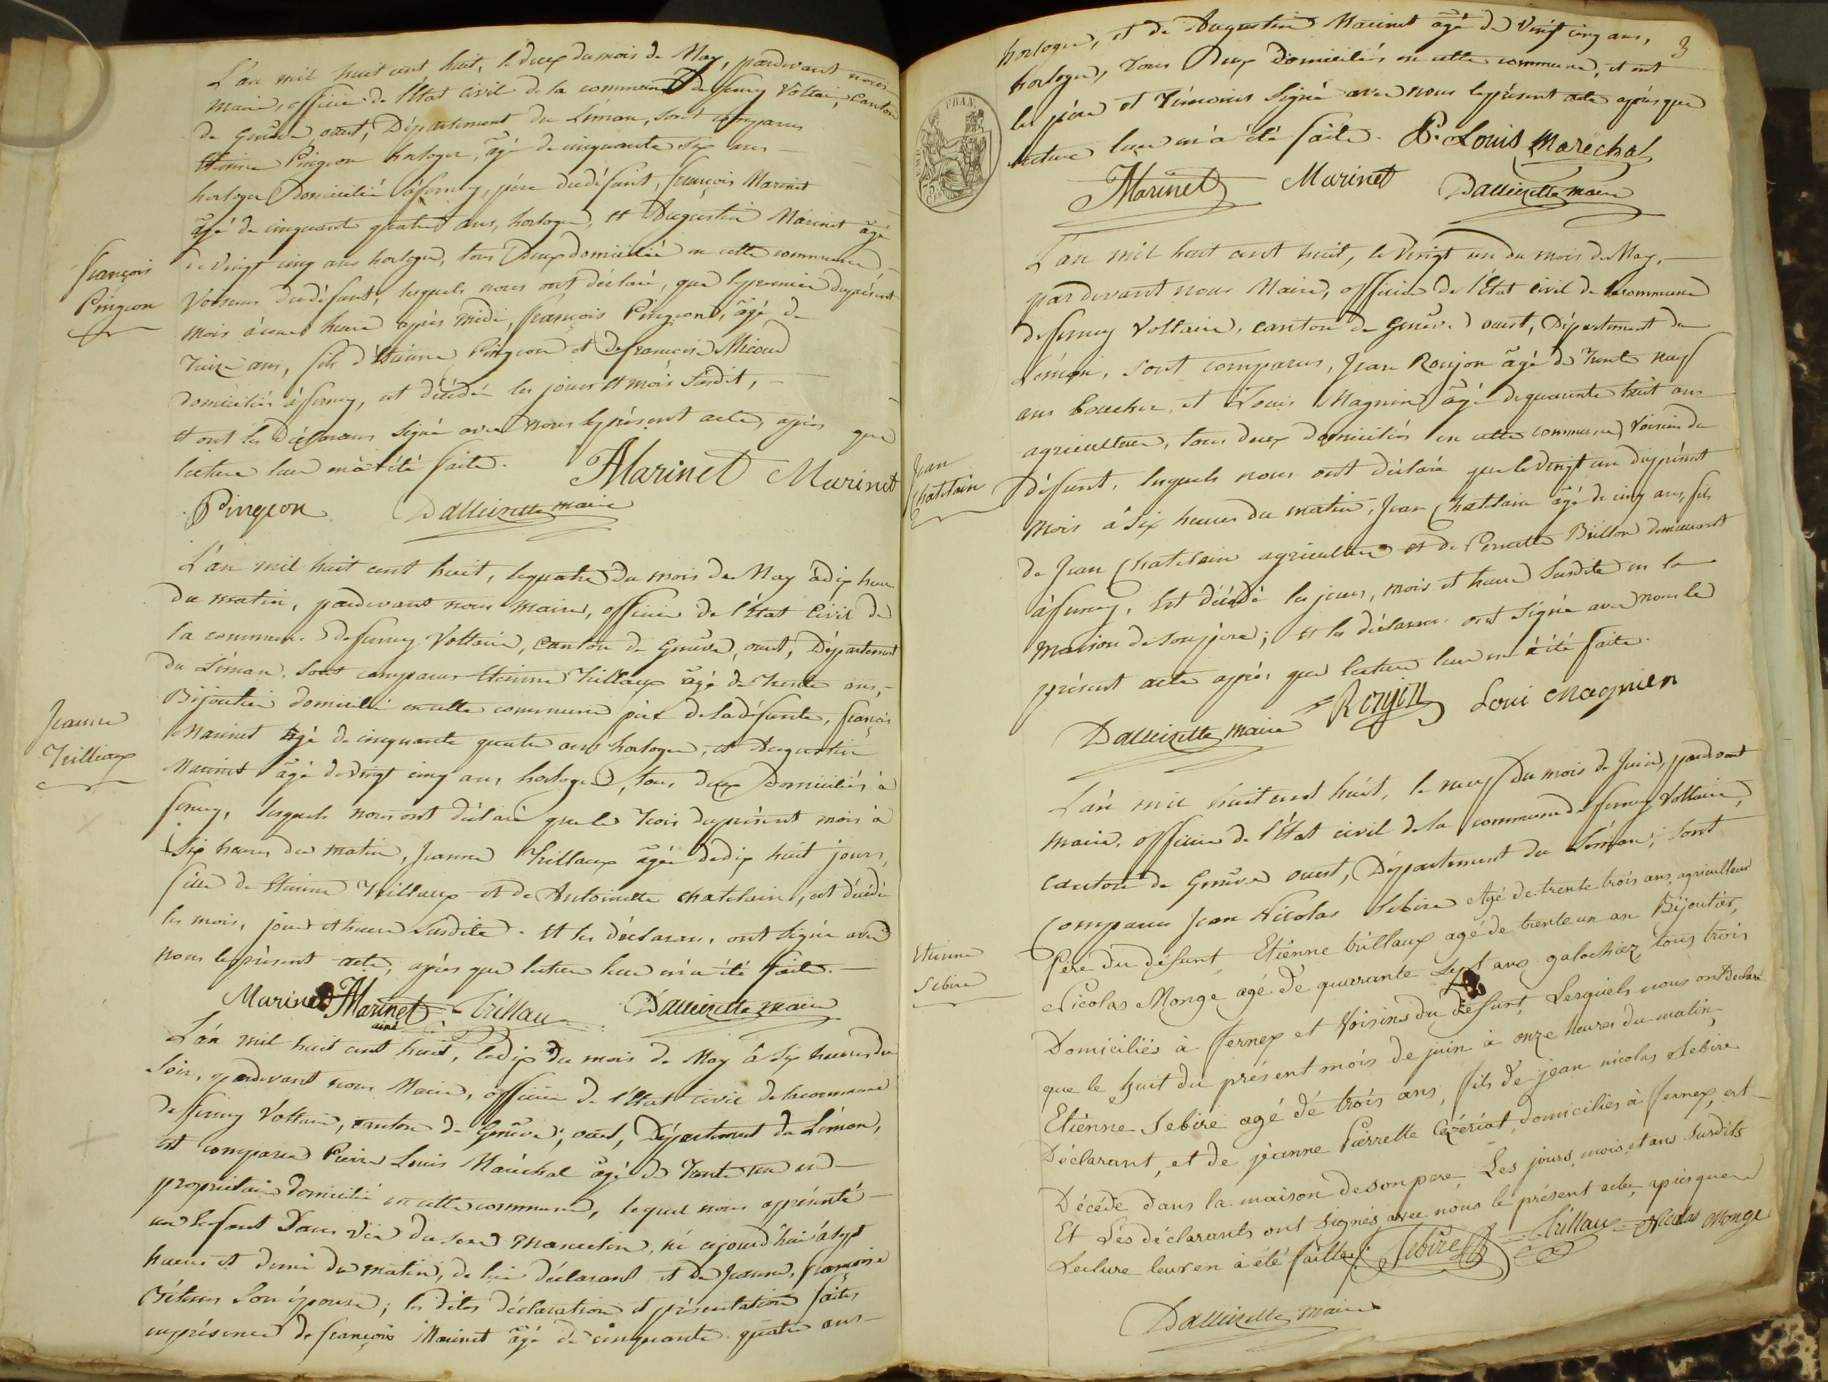 L'an mil huit cent huit, le deux du mois de May, pardevant nous
Maire, officier de l'état civil de la commune de ferney Voltaire, canton
de Genève ouest, Département du Léman, sont comparus
Etienne Pingeon horloger, âgé de cinquante six ans
horloger Domicilié à ferney, père du défunt, françois Marinet
âgé de cinquante quatre ans, horloger, et Augustin Marinet âgé
de vingt cinq ans horloger, tous Deux domiciliés en cette commune,
françois
Pingeon
Voisins du défunt, lesquels nous ont déclaré, que le premier du présent
mois à une heure après midi, françois Pingeon, âgé de
ans, fils d'Etienne Pingeon et de francoise Micoud
domiciliés à ferney, est décédé les jours et mois susdit,
et ont les déclarans signé avec nous le présent acte, après que
lecture leur en a été faite. AMarinet Marinet
Pingeon Dallizette maire
L'an mil huit cent huit, le quatre du mois de May à dix heures
du matin, pardevant nous Maire, officier de l'état Civil de
la commune de ferney Voltaire, canton de Genève, ouest, Département
du Léman, sont comparus Etienne Trillaux âgé de Trente ans,
Bijoutier domicilié en cette commune père de la défunte, françois
Jeanne
Trilliaux
Marinet âgé de cinquante quatre ans horloger, et Augustin
Marinet âgé de vingt cinq ans, horloger, tous deux Domiciliés à
ferney, lesquels nous ont déclaré que le trois du présent mois à
Six heures du matin, Jeanne Trillaux âgée de dix huit jours,
fille de Etienne Trillaux et de Antoinette Chatelain, est décédée
les mois, jour et heure susdite. Et les déclarans, ont signé avec
nous le présent acte, après que lecture leur en a été faite.
Marinet AMarinet ainé Trillau Dallizette maire
L'an mil huit cent huit, le dix du mois de May à Six heures du
Soir, pardevant nous Maire, officier de l'état civil de la commune
de ferney Voltaire, canton de Genève, ouest, Département du Léman,
est comparu Pierre Louis Maréchal âgé de Trente un ans
propriétaire domicilié en cette commune, lequel nous a présenté
un Enfant Dont vie du sexe Masculin, né aujourd'hui à sept
heures et demi du matin, de lui déclarant et de Jeanne, françoise
son épouse; les dites déclaration et présentation faites
en présence de françois Marinet âgé de cinquante quatre ans
3
horloger, et de Augustin Marinet âgé de vingt cinq ans,
horloger, Tous Deux Domiciliés en cette commune, et ont
les père et Témoins signé avec nous le présent acte après que
lecture leur en a été faite. P. Louis Marechal
AMarinet Marinet Dallizette maire
L'an mil huit cent huit, le vingt un du mois de May,
pardevant nous Maire, officier de l'état civil de la commune
de ferney Voltaire, canton de Genève ouest, Département du
Léman, sont comparus, Jean Roujon âgé de Trente neuf
ans boucher, et Louis Magnin âgé de quarante huit ans
agriculteur, tous deux domiciliés en cette commune, Voisins du
Jean
Chatelain
défunt, lesquels nous ont déclaré que le vingt un du présent
mois à six heures du matin, Jean Chatelain âgé de cinq ans, fils
de Jean Chatelain agriculteur et de Pernette Brillon demeurant
à ferney, est décédé les jour, mois et heure susdite en la
maison de son père; et les déclarans ont signé avec nous le
présent acte après que lecture leur en a été faite.
Dallizette maire Roujon Loui Magnien
L'an mil huit cent huit, le neuf Du mois de Juin, pardevant
maire, officier de l'état civil de la commune de ferney Voltaire,
canton de Genève ouest, Département du Léman, sont
comparus Jean Nicolas Sebire Agé de trente trois ans, agriculteur
Etienne
Sebire
Père du défunt Etiènne trillaux agé de trente un an Bijoutier,
Nicolas Monge agé de quarante sept ans galochiez tous trois
Domiciliés à fernex et Voisins du défunt, Lesquels nous on Déclaré
que le huit du présent mois de juin à onze heures du matin,
Etiènne Sebire agé de trois ans, fils de jean nicolas Sebire
Déclarant, et de jeanne Pierrette Cezeriat, domiciliés à fernex, est
Décédé dans la maison de son pere. Les jours, mois, et an Susdits
Et Les déclarants ont signés avec nous le présent acte, après que
Lecture leur en à été faitte. Sebire Trillau Nicolas Monge
Dallizette maire